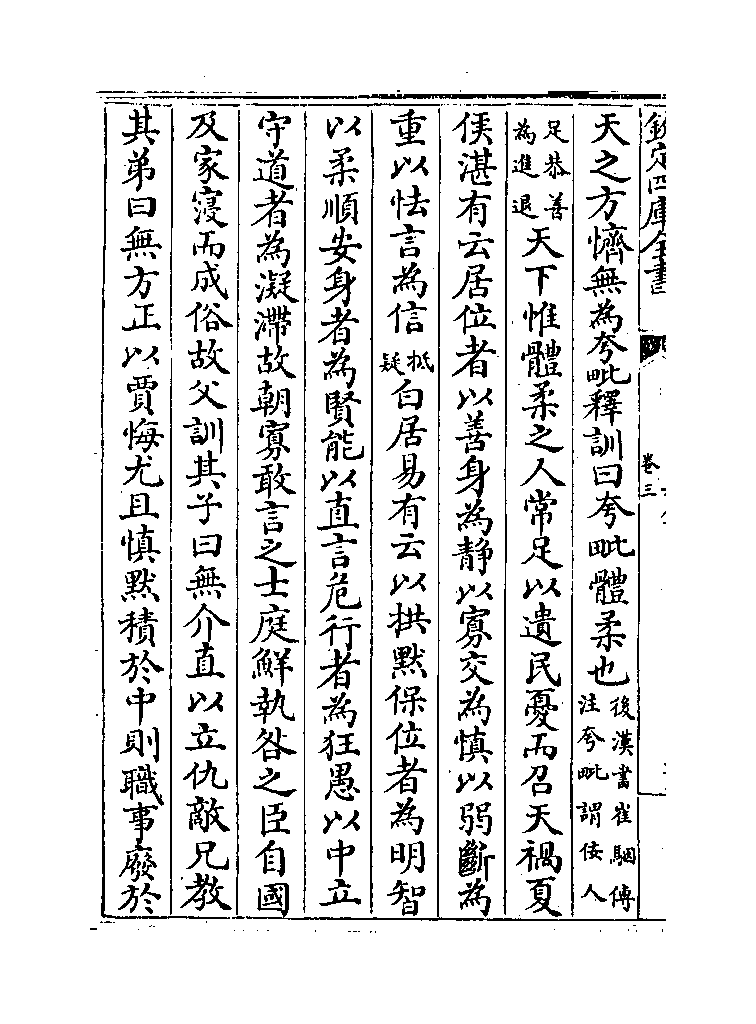 欽定四庫全書
卷三
天之方懠無為夸毗釋訓曰夸毗體柔也後漢書崔駰傳注夸毗謂佞人
足恭善為進退天下惟體柔之人常足以遺民憂而召天禍夏
侯湛有云居位者以善身為靜以寡交為慎以弱斷為
重以怯言為信抵疑白居易有云以拱默保位者為明智
以柔順安身者為賢能以直言危行者為狂愚以中立
守道者為凝滯故朝寡敢言之士庭鮮執咎之臣自國
及家寖而成俗故父訓其子曰無介直以立仇敵兄教
其弟曰無方正以賈悔尤且慎默積於中則職事廢於